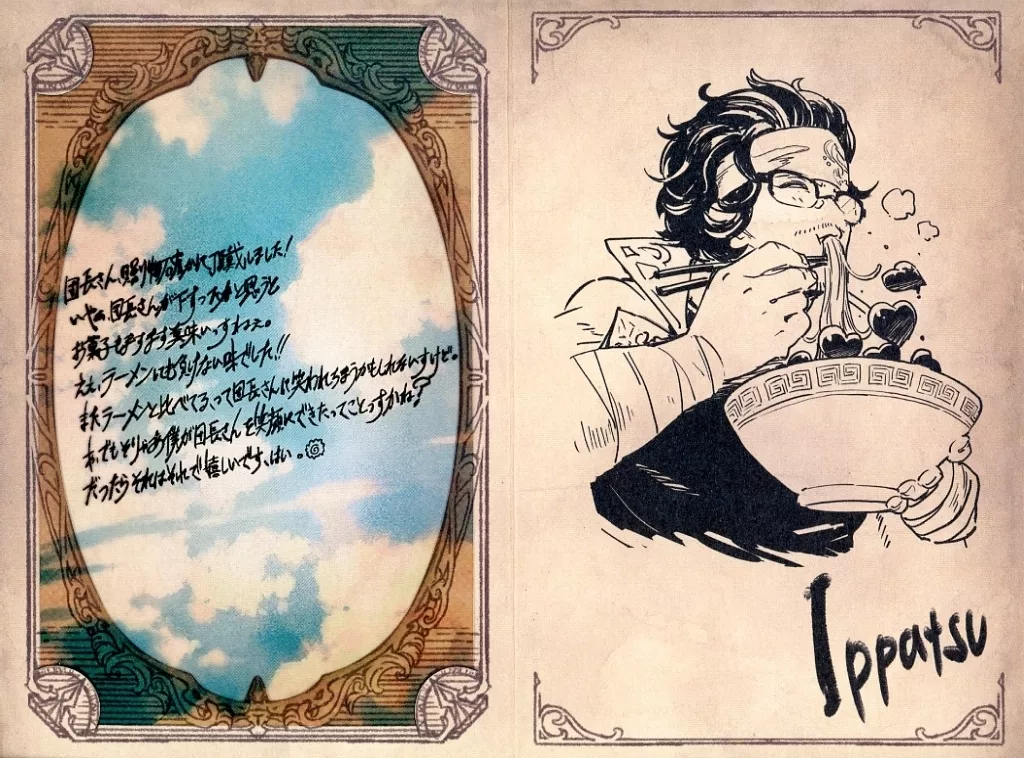 団長さん、贈り物有難く頂戴しました!
いやぁ、団長さんが下すったかと思うと
お菓子もますます美味いっすねぇ。
えぇ、ラーメンにも負けない味でした!!
またラーメンと比べてる、って団長さんに笑われちまうかもしれないすけど。
わ、でもそりゃあ僕が団長さんを笑顔にできたってことっすかね?
だったらそれはそれで嬉しいです、はい。
Ippatsu